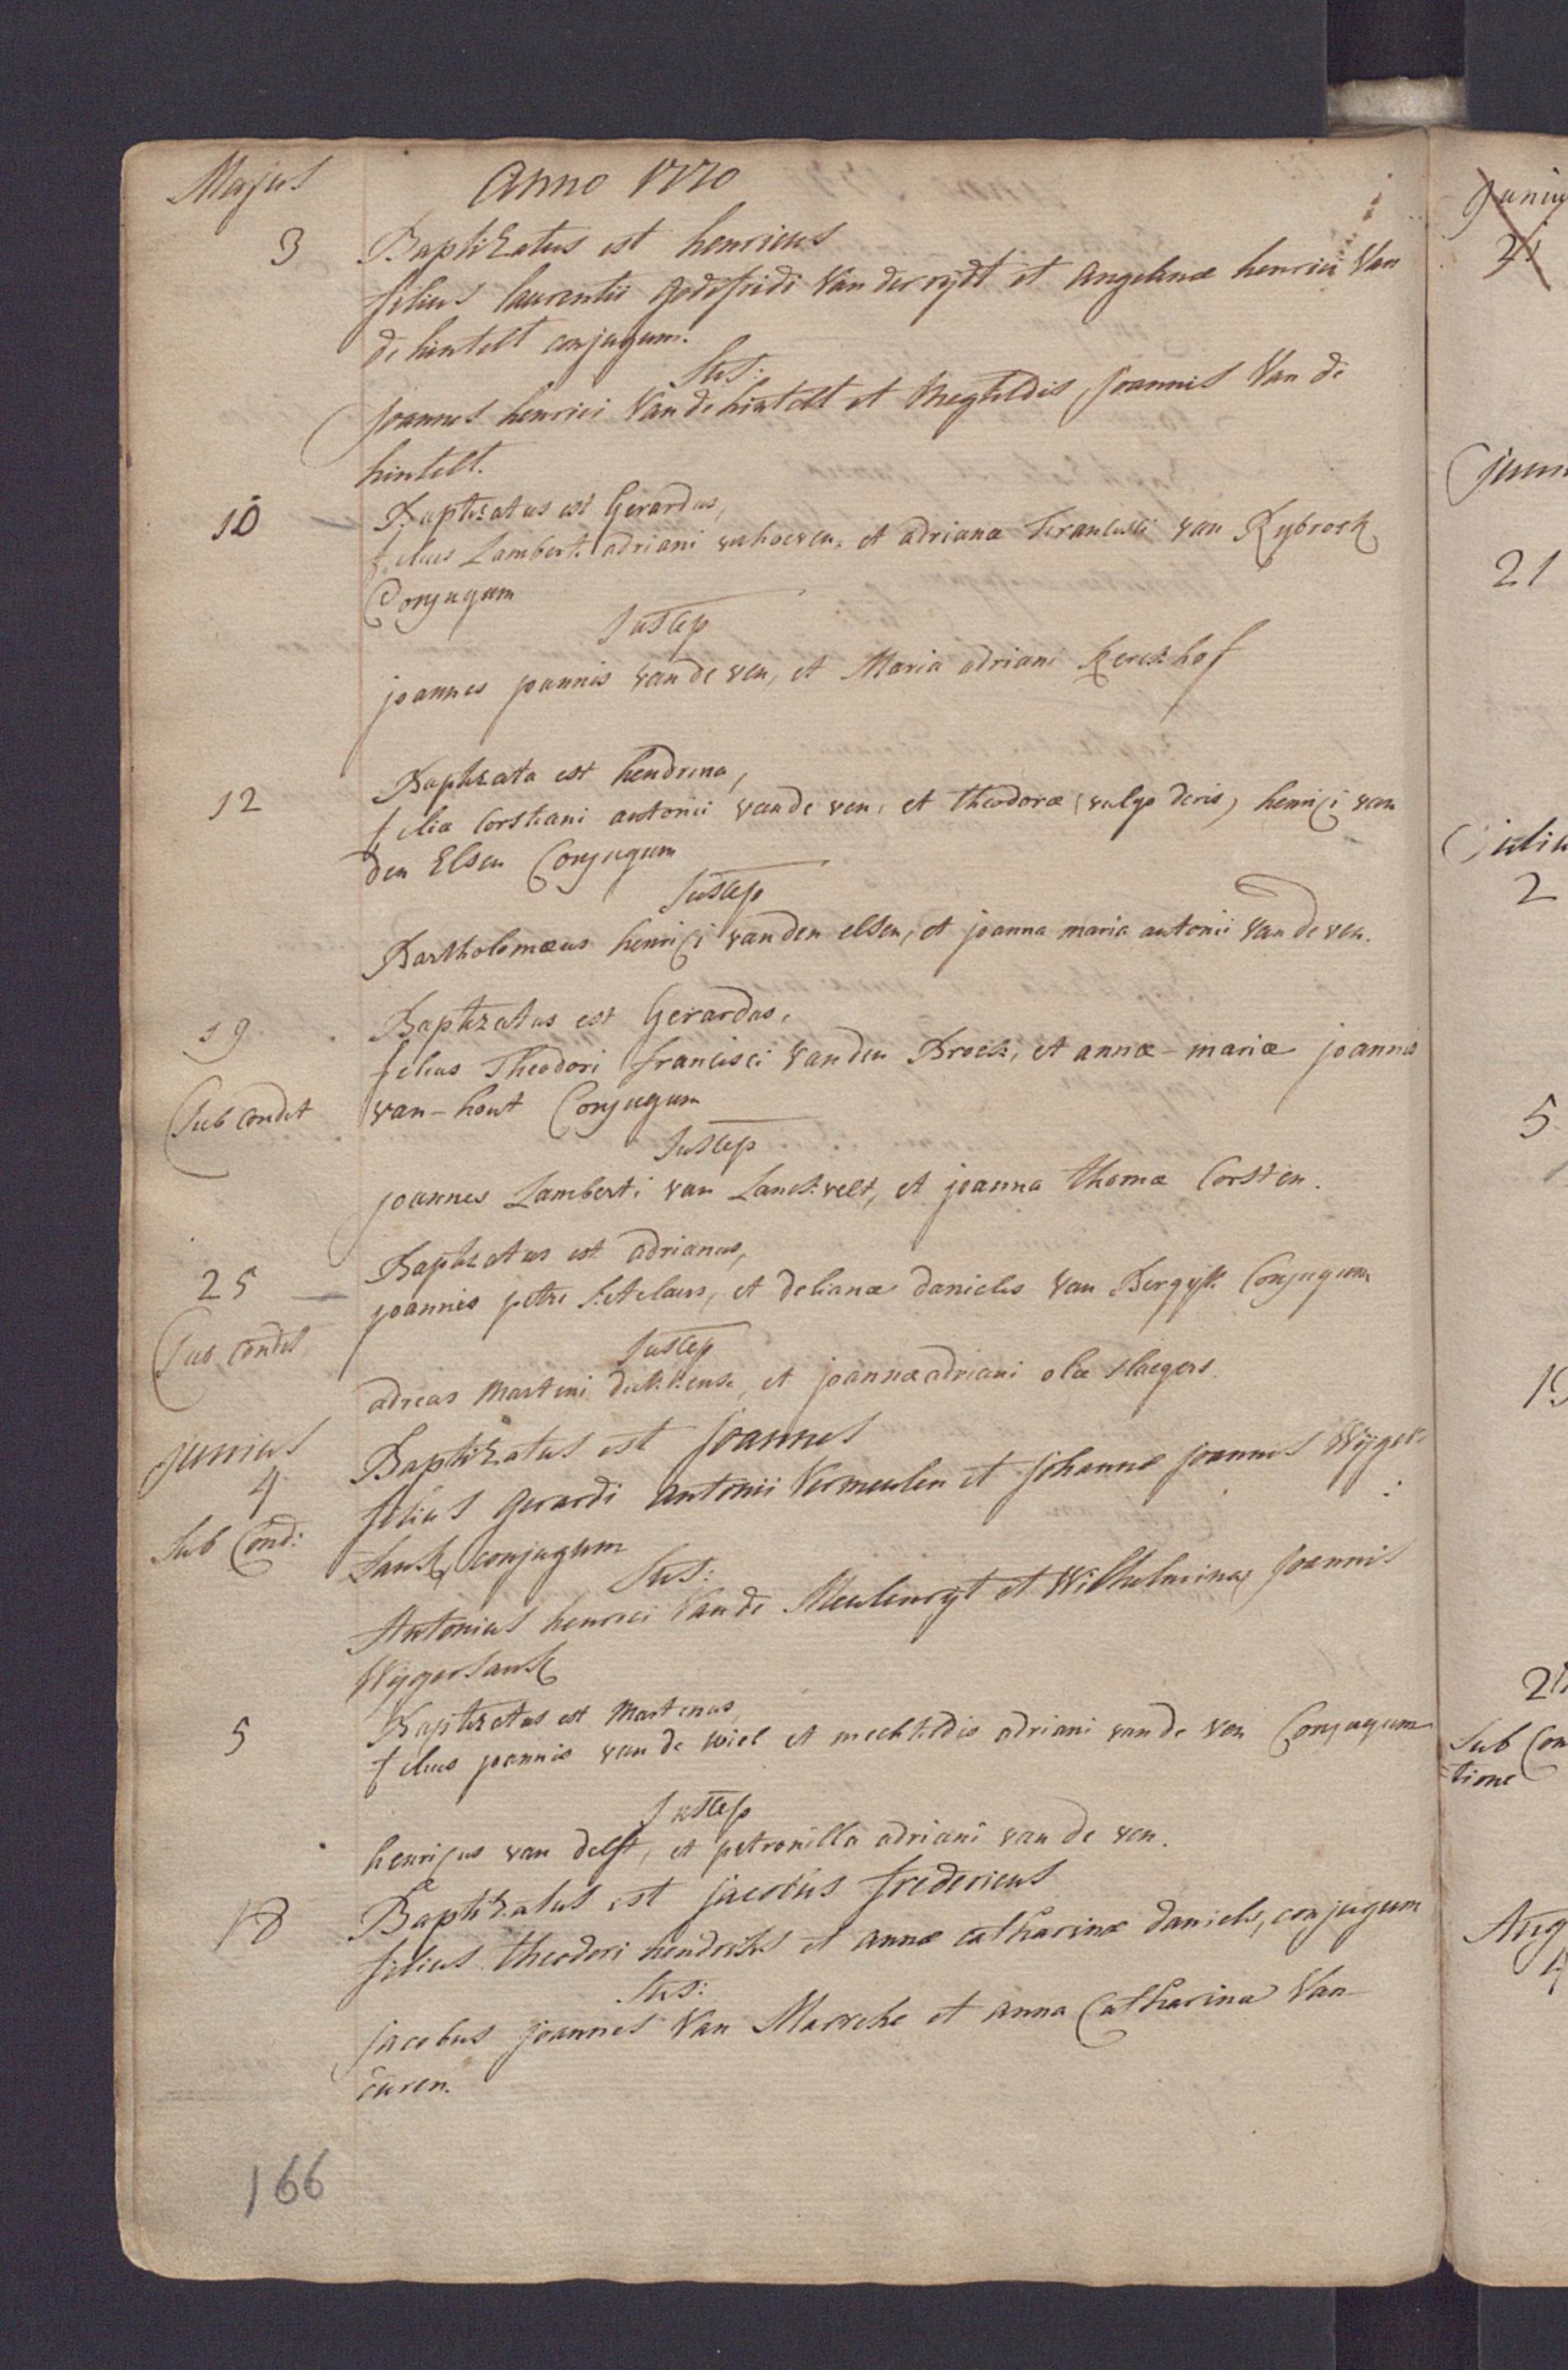 Majus Anno 1770
3 Baptizatus est henricus
filius laurentii godefridi Van der rydt et Angelinæ henrici Van
de hintelt conjugum.
Sus:
Joannes henrici Van de hintelt et Megtildis Joannis Van de
hintelt.
10 Baptizatus est Gerardus,
filius Lamberti adriani verhoeven, et adrianæ Francisci van Rybroek
Conjugum
Suscep
joannes joannis van de ven, et Maria adriani Kerckhof
12 Baptizata est hendrina,
filia Corstiani antonii van de ven, et theodoræ (vulgo deris) henrici van
den Elsen Conjugum
Suscep
Bartholomæus henrici van den elsen, et joanna maria antonii Van de ven.
19 Baptizatus est Gerardus,
filius Theodori francisci Van den Broek, et annæ-mariæ joannis
Sub condit van-hout Conjugum
Suscep
joannes Lamberti van Lanckvelt, et joanna thomæ Corsten.
25 Baptizatus est adrianus,
joannis petri Ketelaers, et delianæ danielis Van Bergyk Conjugum
Sub condit
Suscep
adreas Martini , et joannæ adriani olæ slaegers.
junius
4 Baptizatus est Joannes
filius Gerardi Antonii Vermeulen et Johannæ Joannes Wyger
Sub Cond: Sanck conjugum
Sus:
Antonius henrici Van de Meulenryt et Wilhelmina Joannis
Wygersanck
5 Baptizatus est Martinus,
filius joannis van de wiel et mechtildis adriani van de ven Conjugum
Suscep
henricus van delft, et petronilla adriani van de ven.
18 Baptizatus est jacobus fredericus
filius theodori hendriks et Annæ catharinæ Daniels, conjugum
Sus:
jacobus Joannes Van Marrehe et Anna Catharina Van
curen.
166
Junius
21
21
2
5
19
Sub Con
tione
Aug
4